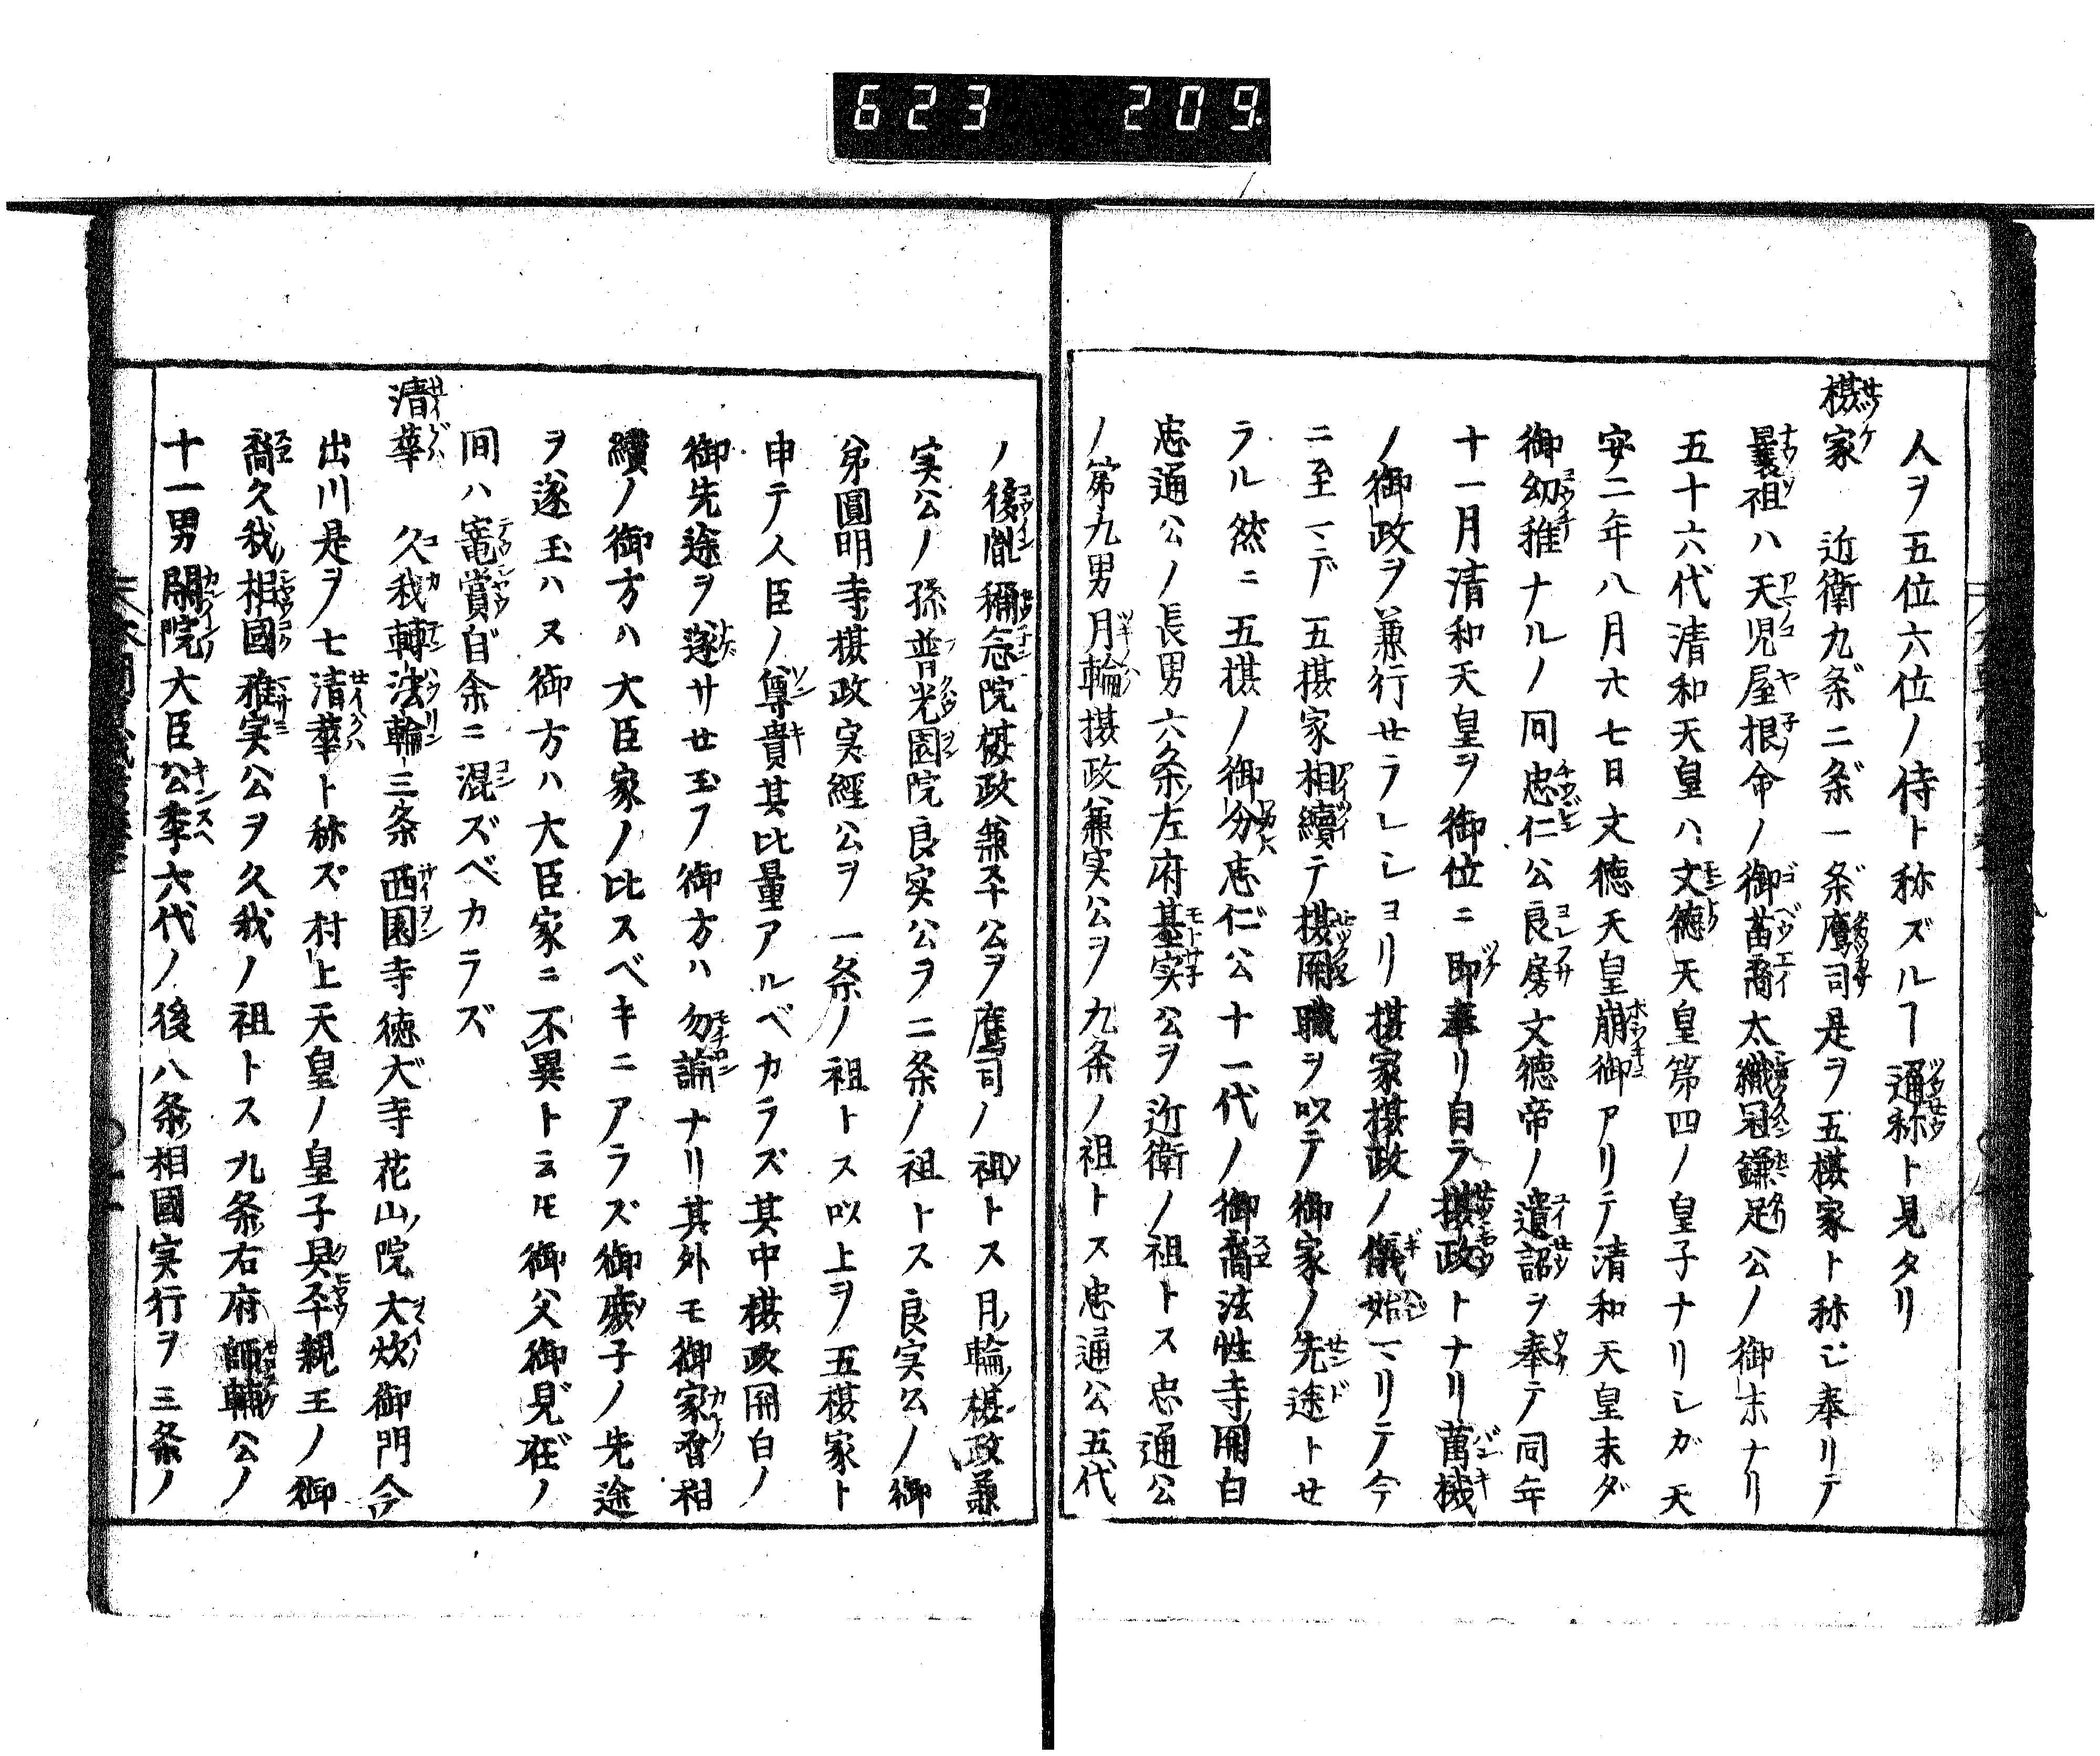 623 209
人ヲ五位六位ノ侍ト称ズルヿ通称ト見タリ
摂家 近衛九条二条一条鷹司是ヲ五摂家ト称シ奉リテ
曩祖ハ天児屋根命ノ御苗裔太織冠鎌足公ノ御末ナリ
五十六代清和天皇ハ文徳天皇第四ノ皇子ナリシガ天
安二年八月六七日文徳天皇崩御アリテ清和天皇未ダ
御幼稚ナルノ间忠仁公良房文徳帝ノ遺詔ヲ奉テ同年
十一月清和天皇ヲ御位ニ即奉リ自ラ摂政トナリ萬機
ノ御政ヲ兼行セラレシヨリ摂家摂政ノ儀始マリテ今
ニ至マデ五摂家相續テ摂関職ヲ以テ御家ノ先途トセ
ラル然ニ五摂ノ御分忠仁公十一代ノ御裔法性寺関白
忠通公ノ長男六条左府基実公ヲ近衛ノ祖トス忠通公
ノ第九男月輪摂政兼実公ヲ九条ノ祖トス忠通公五代
ノ後胤称念院摂政兼平公ヲ鷹司ノ祖トス月輪摂政兼
実公ノ孫普光園院良実公ヲ二条ノ祖トス良実公ノ御
弟圓明寺摂政実經公ヲ一条ノ祖トス以上ヲ五摂家ト
申テ人臣ノ尊貴其比量アルベカラズ其中摂政関白ノ
御先途ヲ遂サセ玉フ御方ハ勿論ナリ其外モ御家督相
續ノ御方ハ大臣家ノ比スベキニアラズ御庶子ノ先途
ヲ遂玉ハヌ御方ハ大臣家ニ不異ト云ℸモ御父御見在ノ
间ハ寵賞自余ニ混ズベカラズ
清華 久我轉法輪三条西園寺徳大寺花山院大炊御門今
出川是ヲ七清華ト称ス村上天皇ノ皇子具平親王ノ御
裔久我相國雅実公ヲ久我ノ祖トス九条右府師輔公ノ
十一男閑院大臣公季六代ノ後八条相國実行ヲ三条ノ